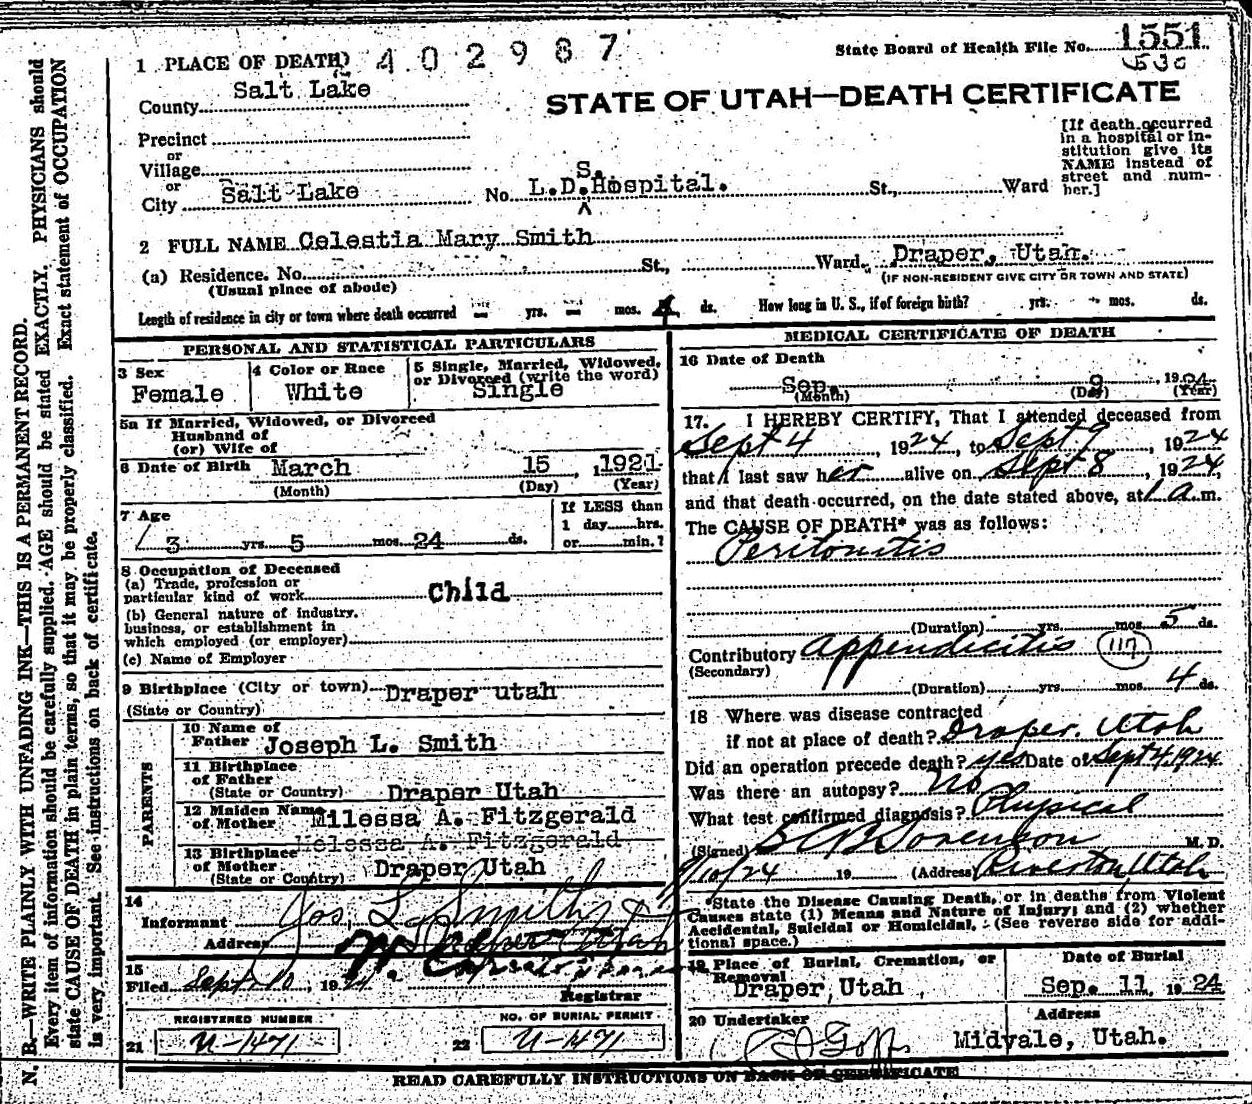 State Board of Health File No. 1551
1 PLACE OF DEATH 402987
530
County Salt Lake
STATE OF UTAH—DEATH CERTIFICATE
Precinct
or
Village
or
City Salt Lake No. L.D.S. Hospital. St., Ward
[If death occurred
in a hospital or in-
stitution give its
NAME instead of
street and num-
ber.]
2 FULL NAME Celestia Mary Smith
(a) Residence. No. St., Ward, Draper, Utah.
(Usual place of abode) (IF NON-RESIDENT GIVE CITY OR TOWN AND STATE)
Length of residence in city or town where death occurred — yrs. — mos. 4 ds. How long in U. S., if of foreign birth? yrs. mos. ds.
PERSONAL AND STATISTICAL PARTICULARS
3 Sex Female
4 Color or Race White
5 Single, Married, Widowed,
or Divorced (write the word)
Single
5a If Married, Widowed, or Divorced
Husband of
(or) Wife of
6 Date of Birth March 15, 1921
(Month) (Day) (Year)
7 Age
3 yrs. 5 mos. 24 ds.
If LESS than
1 day hrs.
or min.?
8 Occupation of Deceased
(a) Trade, profession or
particular kind of work Child
(b) General nature of industry,
business, or establishment in
which employed (or employer)
(c) Name of Employer
9 Birthplace (City or town) Draper utah
(State or Country)
PARENTS
10 Name of
Father Joseph L. Smith
11 Birthplace
of Father
(State or Country) Draper Utah
12 Maiden Name
of Mother Milessa A. Fitzgerald
Melessa A. Fitzgerald
13 Birthplace
of Mother
(State or Country) Draper Utah
14
Informant Jos L. Smith
Address Draper Utah
15
Filed Sept 10, 1924
Registrar
REGISTERED NUMBER NO. OF BURIAL PERMIT
21 U-1471 22 U-1471
MEDICAL CERTIFICATE OF DEATH
16 Date of Death
Sep. 9, 1924
(Month) (Day) (Year)
17. I HEREBY CERTIFY, That I attended deceased from
Sept 4 1924, to Sept 9, 1924
that I last saw her alive on Sept 8, 1924,
and that death occurred, on the date stated above, at 1 a.m.
The CAUSE OF DEATH* was as follows:
Peritonitis
(Duration) yrs. mos. 5 ds.
Contributory appendicitis 117
(Secondary)
(Duration) yrs. mos. 4 ds.
18 Where was disease contracted
if not at place of death? Draper, Utah
Did an operation precede death? yes Date of Sept 4, 1924
Was there an autopsy? No
What test confirmed diagnosis? Physical
(Signed) Sorenson M. D.
9/10/24 19 (Address) Riverton, Utah
*State the Disease Causing Death, or in deaths from Violent
Causes state (1) Means and Nature of Injury; and (2) whether
Accidental, Suicidal or Homicidal. (See reverse side for addi-
tional space.)
19 Place of Burial, Cremation, or
Removal
Draper, Utah
Date of Burial
Sep. 11, 1924
20 Undertaker
Goff
Address
Midvale, Utah.
READ CAREFULLY INSTRUCTIONS ON BACK OF CERTIFICATE
N. B.—WRITE PLAINLY WITH UNFADING INK—THIS IS A PERMANENT RECORD.
Every item of information should be carefully supplied. AGE should be stated EXACTLY. PHYSICIANS should
state CAUSE OF DEATH in plain terms, so that it may be properly classified. Exact statement of OCCUPATION
is very important. See instructions on back of certificate.